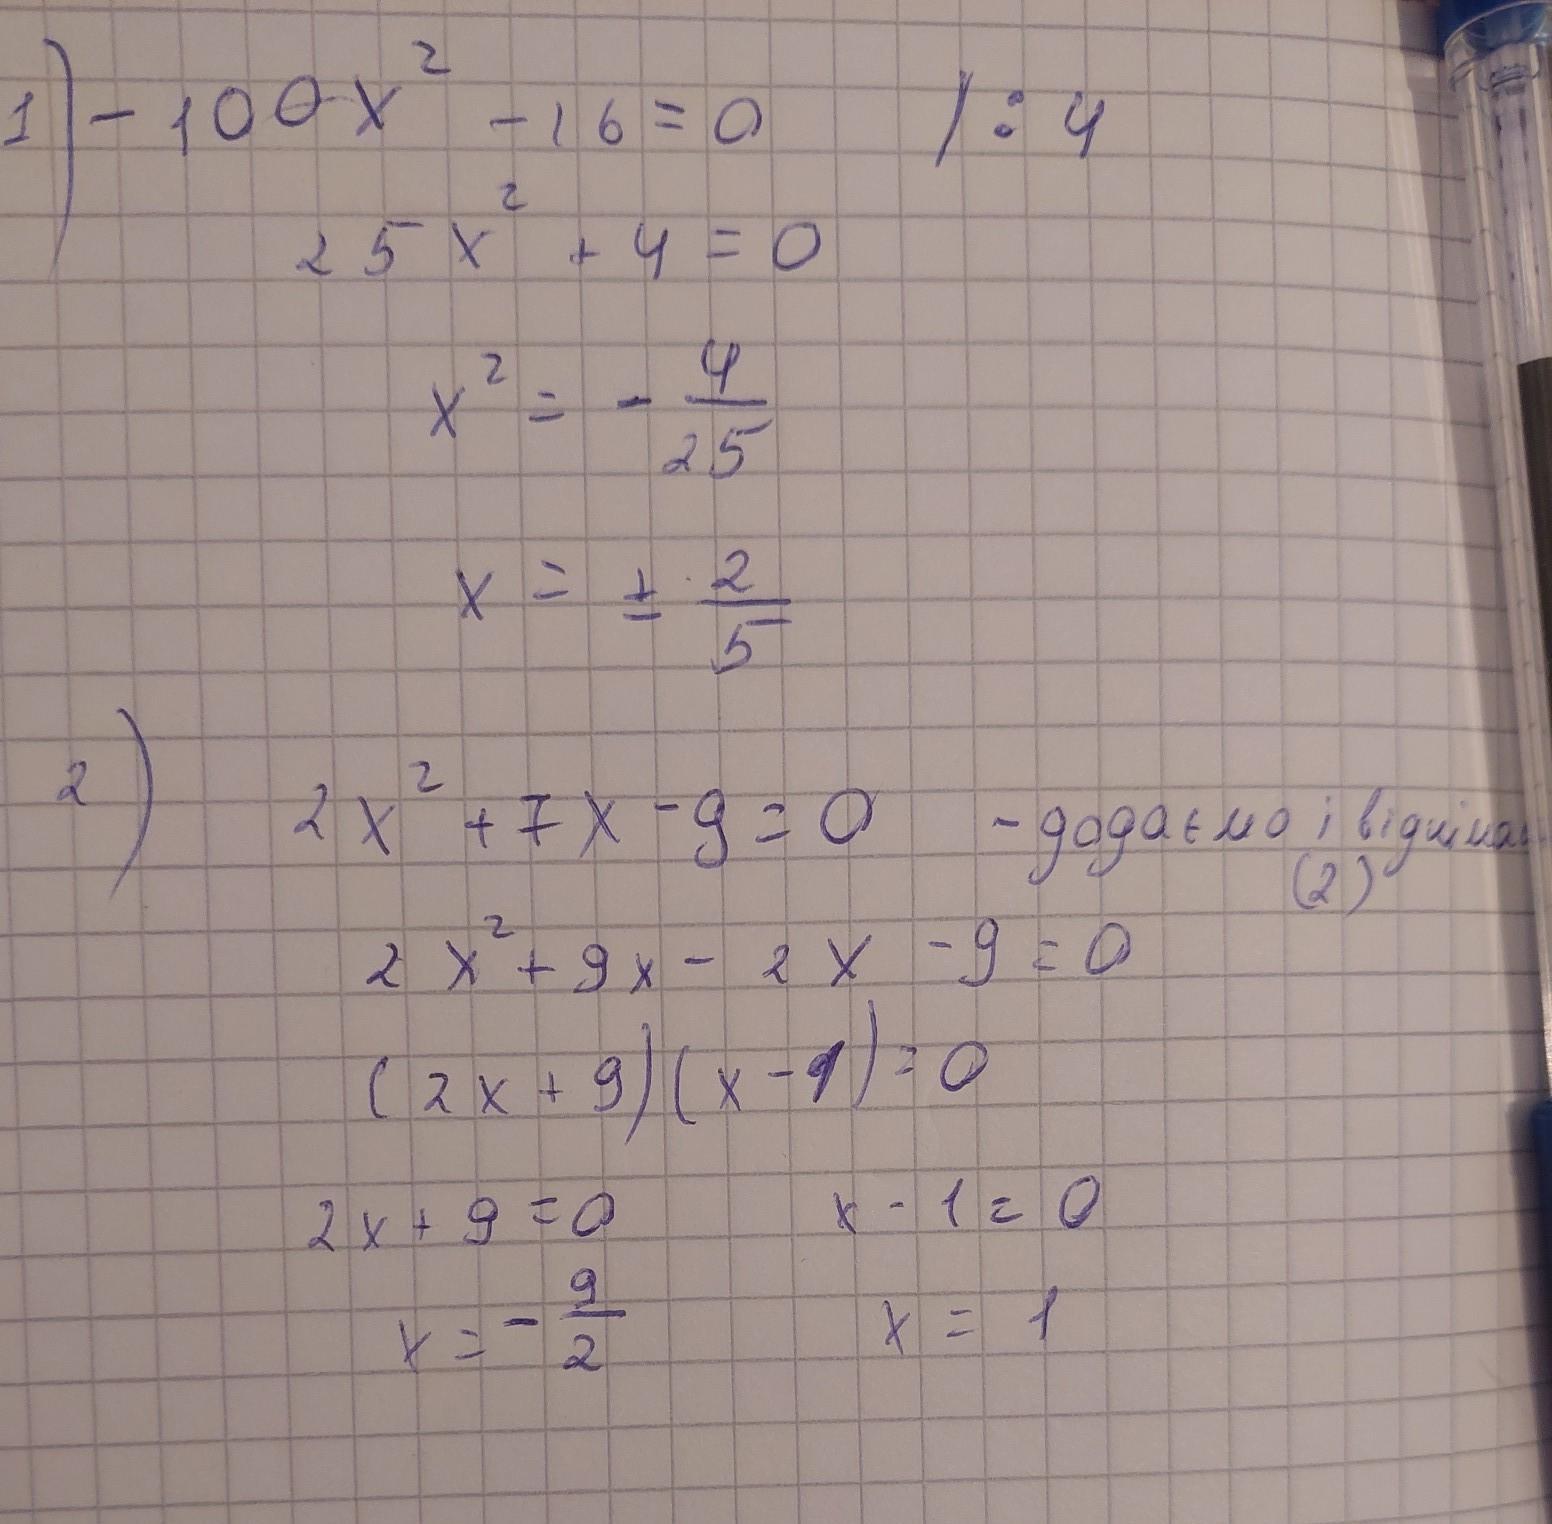 1) -100x² - 16 = 0 /: 4
25x² + 4 = 0
x² = - 4/25
x = ± 2/5
2) 2x² + 7x - 9 = 0 - додаємо і
(2)
2x² + 9x - 2x - 9 = 0
(2x + 9)(x - 1) = 0
2x + 9 = 0 x - 1 = 0
x = - 9/2 x = 1